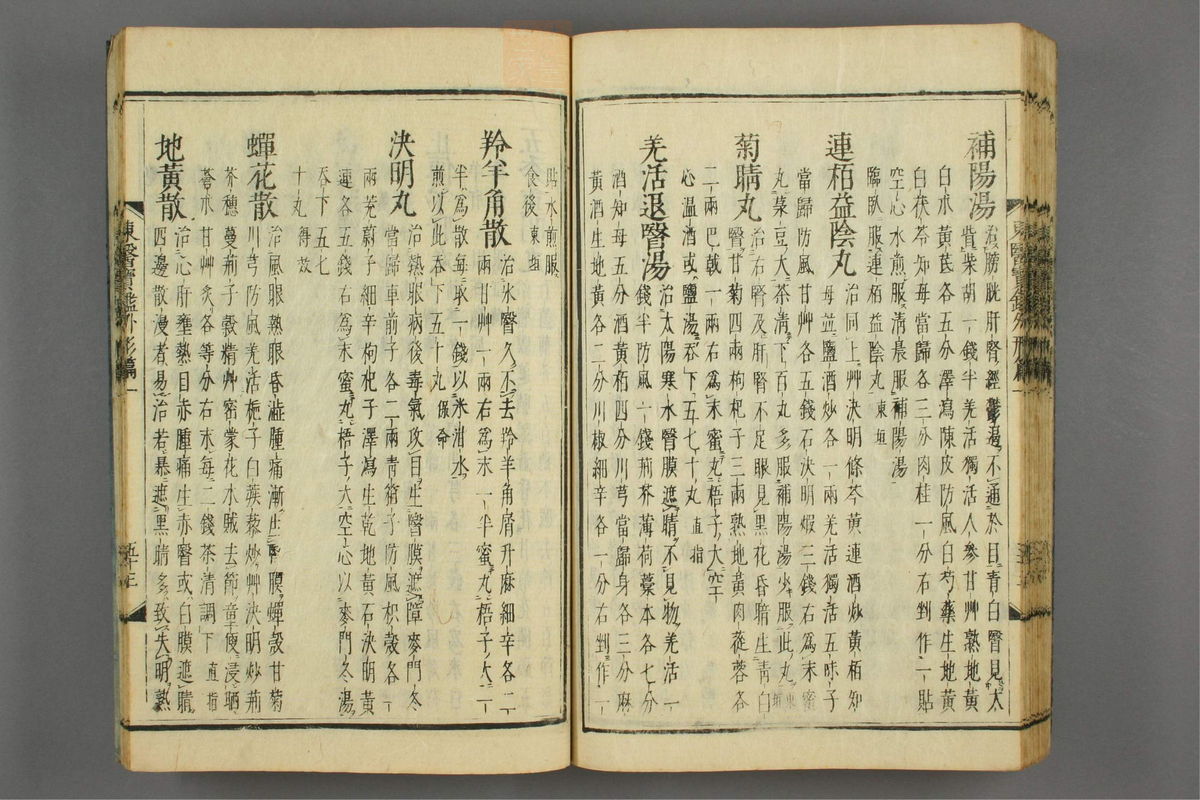 補陽湯 治膀胱肝腎經鬱遏不通於目青白瞖見大
眥柴胡一錢半羌活獨活人參甘艸熟地黃
白朮黃芪各五分澤瀉陳皮防風白芍藥生地黃
白茯苓知母當歸各三分肉桂一分右剉作一貼
空心水煎服淸晨服補陽湯
臨臥服連栢益陰丸 東垣
連栢益陰丸 治同上艸決明條芩黃連酒炒黃栢知
母並鹽酒炒各一兩羌活獨活五味子
當歸防風甘艸各五錢石決明煆三錢右爲末蜜
丸菉豆大茶淸下百丸多服補陽湯少服此丸 東垣
菊睛丸 治右腎及肝腎不足眼見黑花昏暗生靑白
瞖甘菊四兩枸杞子三兩熟地黃肉蓯蓉各
二兩巴戟一兩右爲末蜜丸梧子大空
心溫酒或鹽湯吞下五七十丸 直指
羌活退瞖湯 治太陽寒水瞖膜遮睛不見物羌活一
錢半防風一錢荊芥薄荷藁本各七分
酒知母五分酒黃栢四分川芎當歸身各三分麻
黃酒生地黃各二分川椒細辛各一分右剉作一
東醫寶鑑外形篇一
貼水煎服
食後 東垣
羚羊角散 治氷瞖久不去羚羊角屑升麻細辛各二
兩甘艸一兩右爲末一半蜜丸梧子大一
半爲散每取一錢以米泔水
煎以此吞下五十丸 保命
決明丸 治熱眼病後毒氣攻目生瞖膜遮障麥門冬
當歸車前子各二兩靑葙子防風枳殼各一
兩茺蔚子細辛枸杞子澤瀉生乾地黃石決明黃
連各五錢右爲末蜜丸梧子大空心以麥門冬湯
吞下五七
十丸 得效
蟬花散 治風眼熱眼昏澁腫痛漸生瞖膜蟬殼甘菊
川芎防風羌活梔子白蒺藜炒艸決明炒荊
芥穗蔓荊子穀精艸密蒙花木賊去節童便浸晒
蒼朮甘艸灸各等分右末每二錢茶淸調下 直指
地黃散 治心肝壅熱目赤腫痛生赤瞖或白膜遮睛
四邊散漫者易治若暴遮黑睛多致失明熟
東醫寶鑑外形篇一